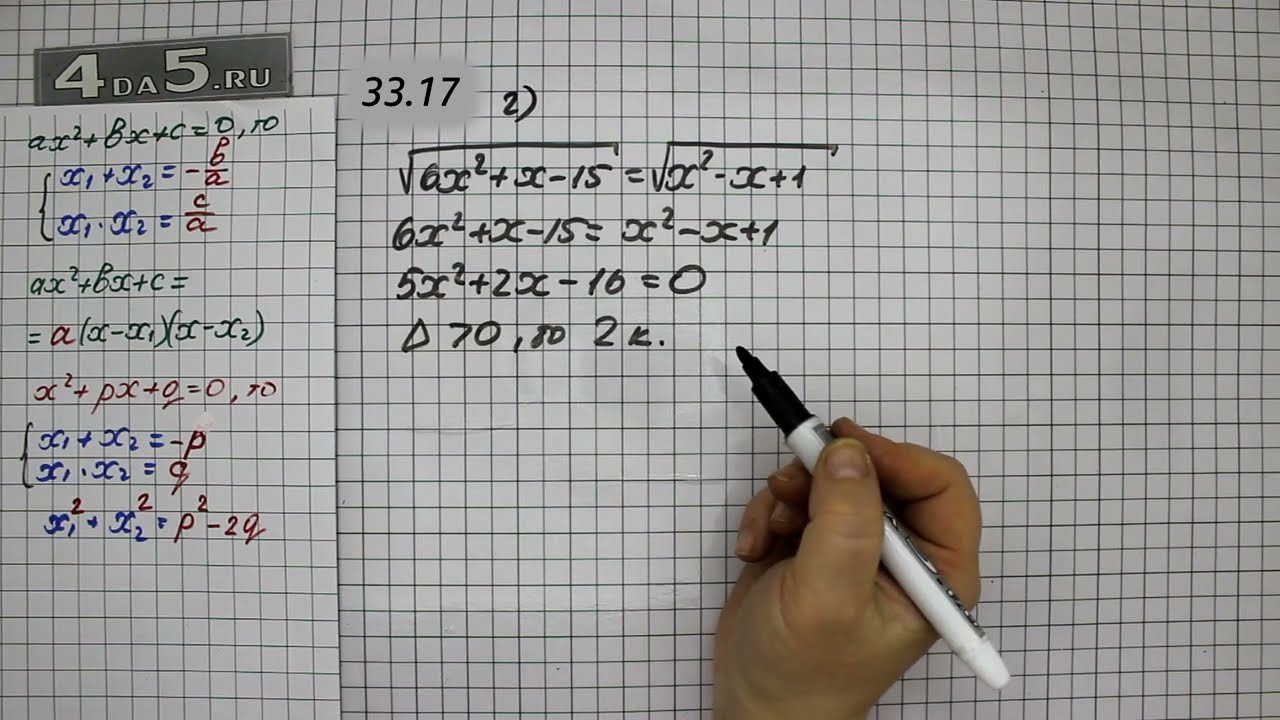 4DA5.RU
ax²+bx+c=0, то
x₁+x₂=-b/a
x₁·x₂=c/a
ax²+bx+c=
=a(x-x₁)(x-x₂)
x²+px+q=0, то
x₁+x₂=-p
x₁·x₂=q
x₁²+x₂²=p²-2q
33.17
2)
√6x²+x-15=√x²-x+1
6x²+x-15=x²-x+1
5x²+2x-16=0
Δ>0, то 2 к.